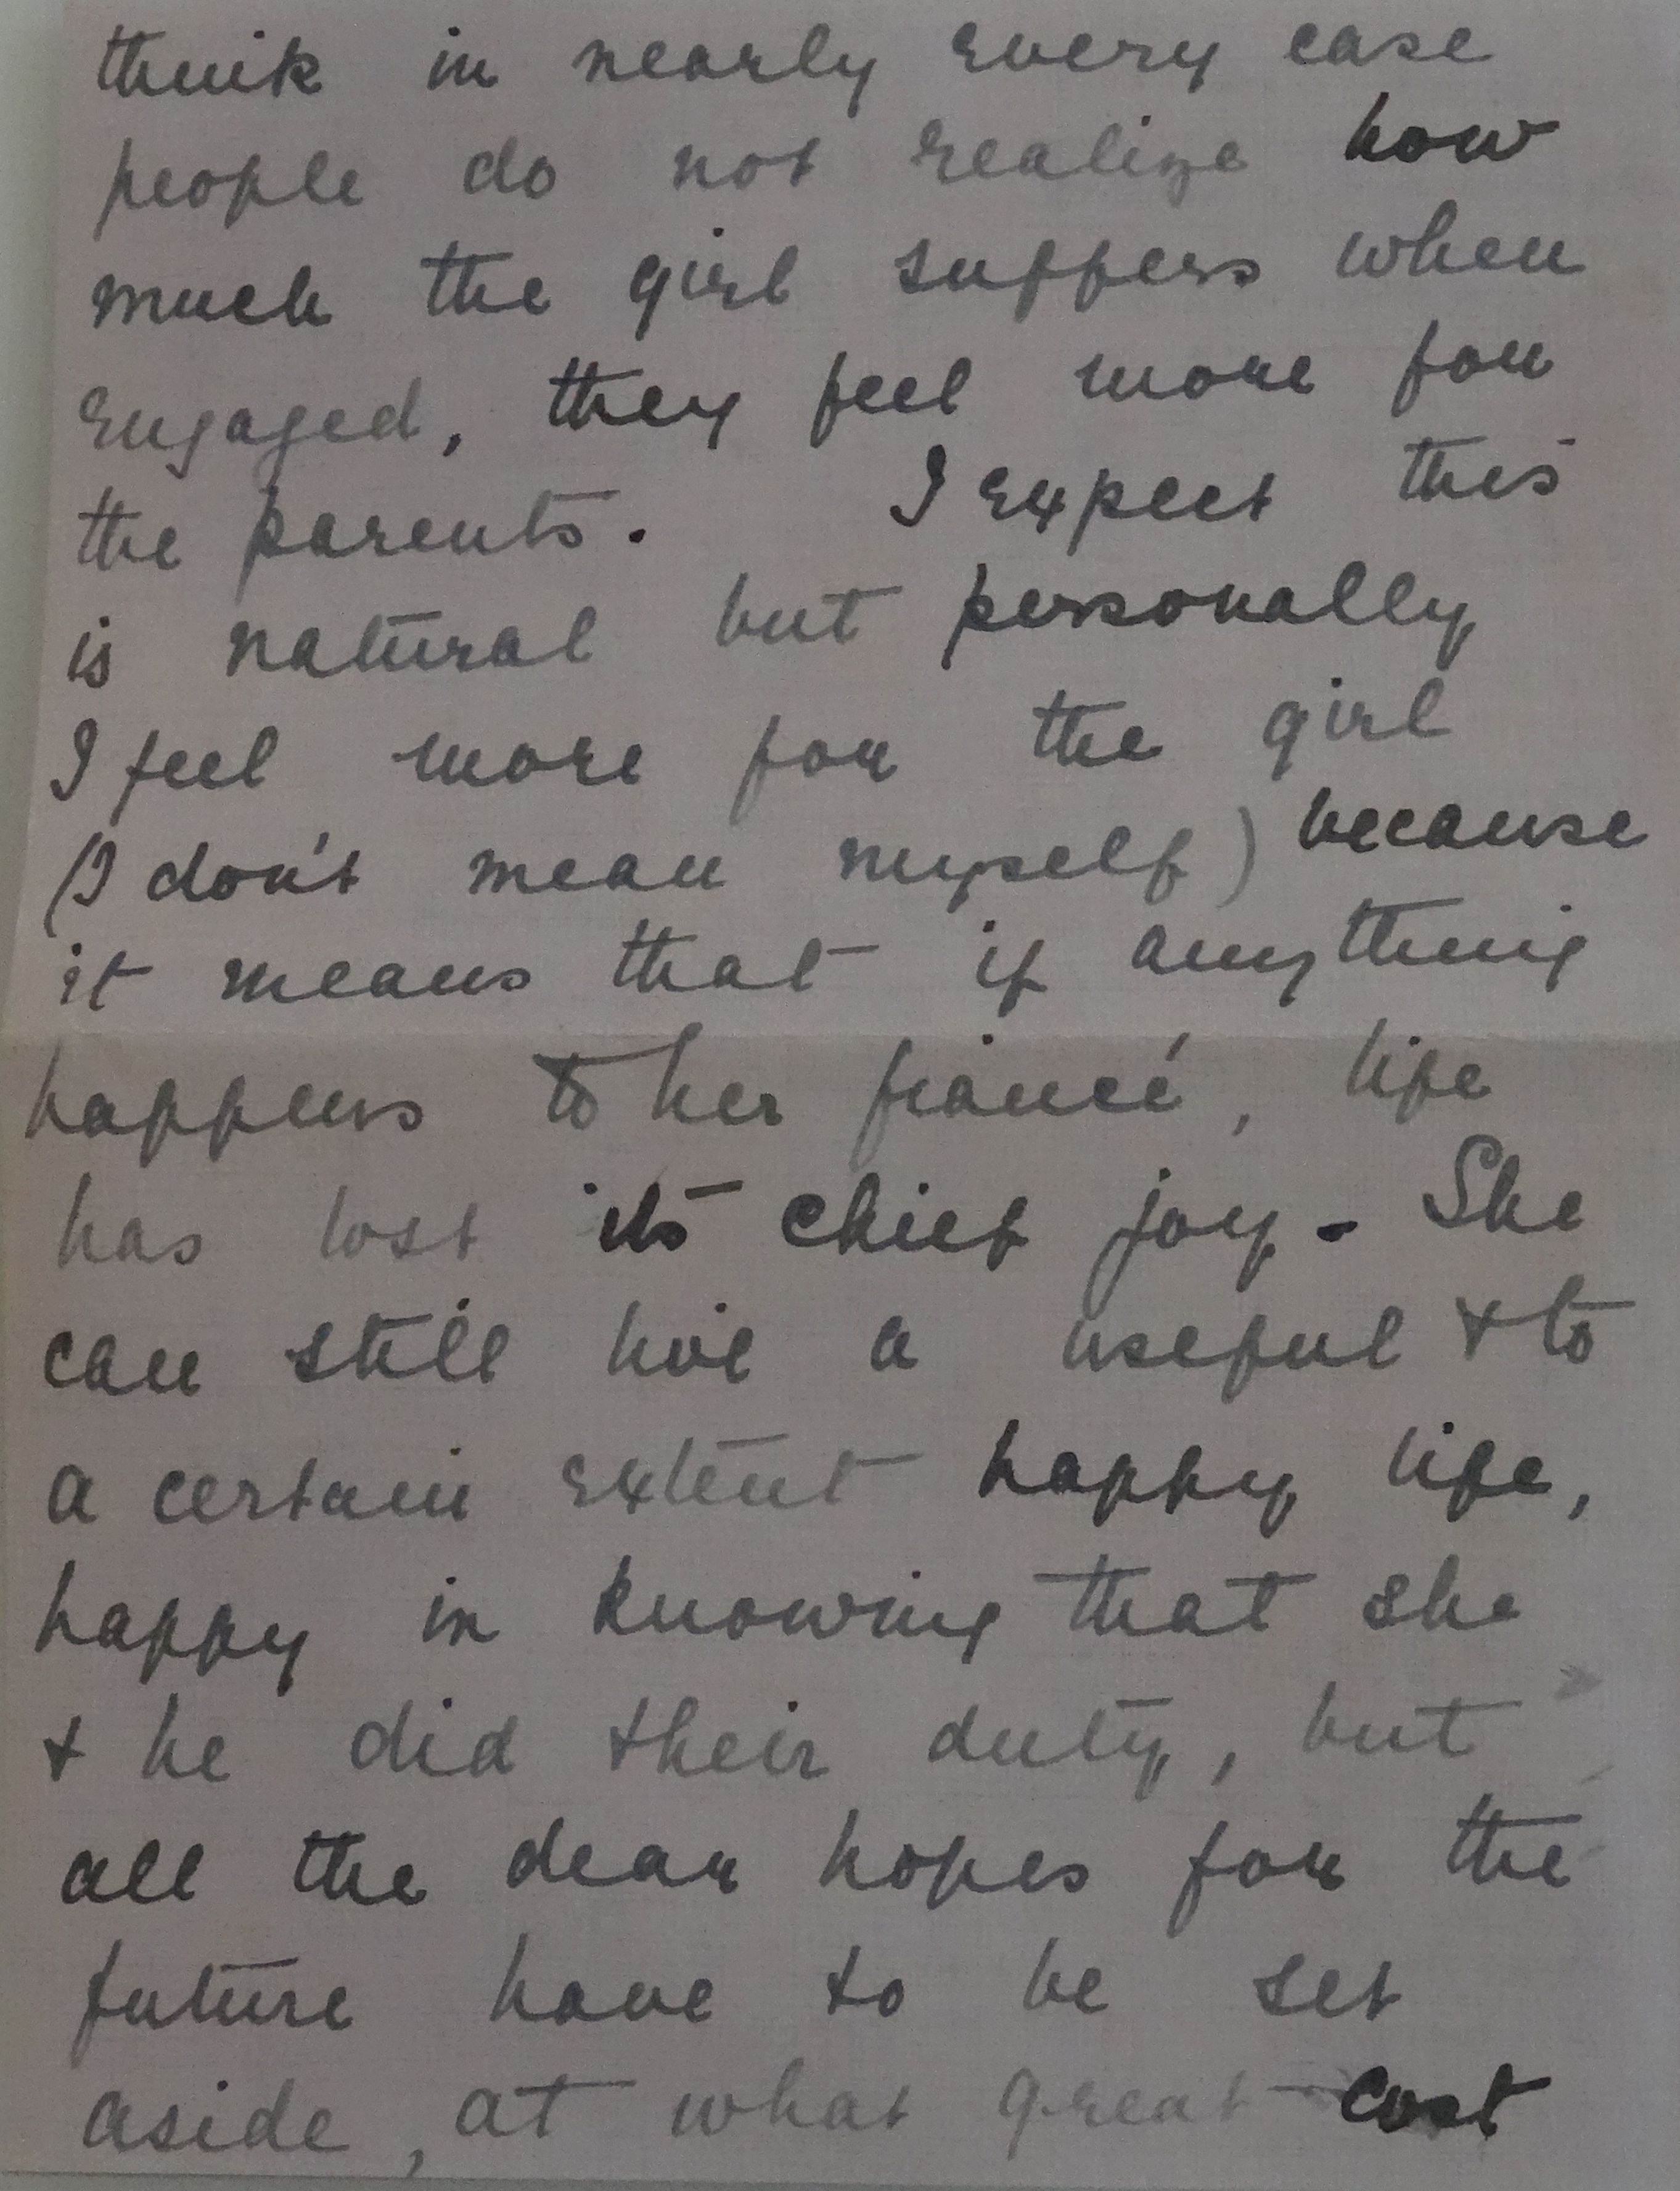 think in nearly every case
people do not realize how
much the girl suffers when
engaged, they feel more for
the parents. I expect this
is natural but personally
I feel more for the girl
(I don't mean myself) because
it means that if anything
happens to her fiancé, life
has lost its chief joy. She
can still live a useful & to
a certain extent happy life,
happy in knowing that she
& he did their duty, but
all the dear hopes for the
future have to be set
aside, at what great cost